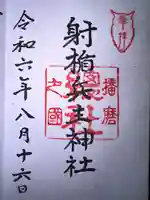 奉拝
播磨
射楯兵主神社
之國
令和六年八月十六日